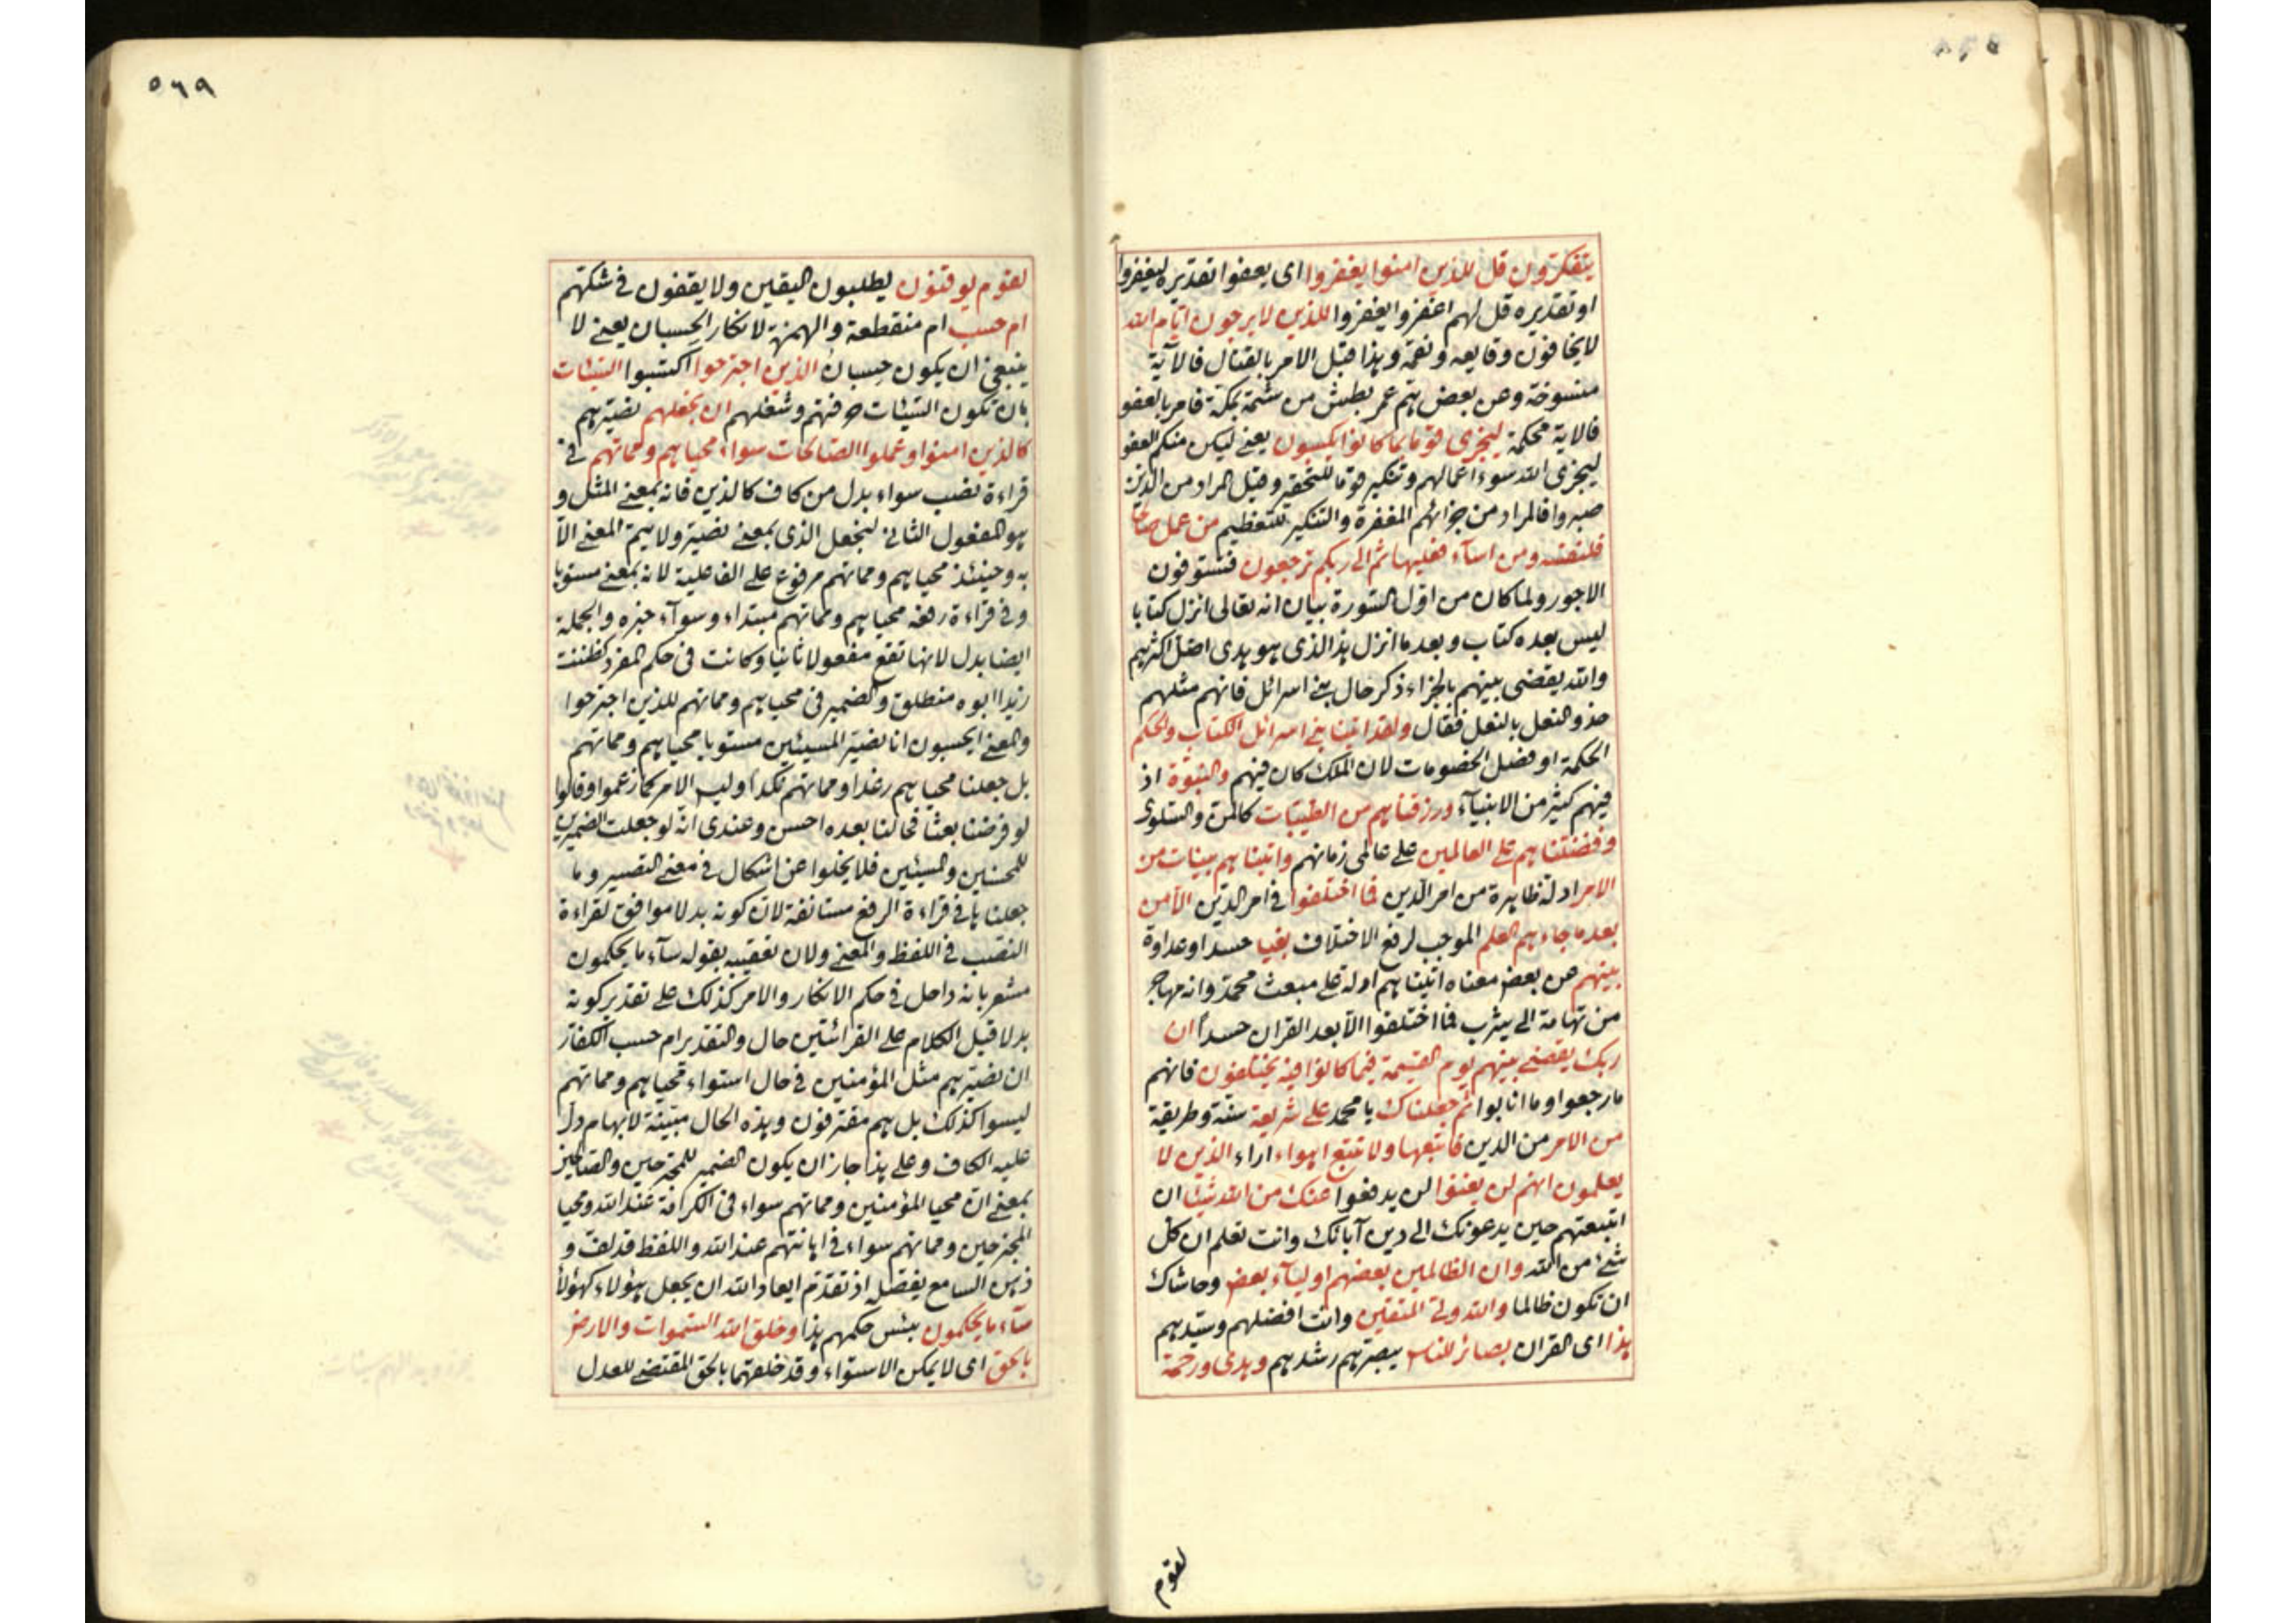 يتفكرون قل للذين امنوا يغفروا اى يعفوا تقديره ليغفروا
او تقديره قل لهم اغفروا يغفروا للذين لا يرجون ايام الله
لا يخافون وقايعه ونقمه وهذا قبل الامر بالقتال فالآية
منسوخة وعن بعض هم عمر بطش من شتمه بمكة فامر بالعفو
فالاية محكمة ليجزى قوما بما كانوا يكسبون يعنے ليكن منكم العفو
ليجزى الله سوء اعمالهم وتنكير قوما للتحقير وقيل المراد من الذين
صبروا فالمراد من جزائهم المغفرة والتنكير للتعظيم من عمل صالحا
فلنفسه ومن اسآء فعليها ثم الى ربكم ترجعون فتستوفون
الاجور ولما كان من اول السورة بيان انه تعالى انزل كتابا
ليس بعده كتاب وبعد ما انزل هذا الذى هو هدى اضل اكثرهم
والله يقضى بينهم بالجزاء ذكر حال بنے اسرائل فانهم مثلهم
حذو النعل بالنعل فقال ولقد اتينا بنے اسرائل الكتاب والحكم
الحكمة او فصل الخصومات لان الملك كان فيهم والنبوة اذ
فيهم كثير من الانبيآء ورزقناهم من الطيبات كالمن والسلوى
وفضلناهم على العالمين على عالمى زمانهم واتيناهم بينات من
الامر ادلة ظاهرة من امر الدين فما اختلفوا فى امر الدين الا من
بعد ما جاءهم العلم الموجب لرفع الاختلاف بغيا حسدا وعداوة
بينهم عن بعض معناه اتيناهم ادلة على مبعث محمد وانه مهاجر
من تهامة الى يثرب فما اختلفوا الا بعد القران حسدا ان
ربك يقضے بينهم يوم القيمة فيما كانوا فيه يختلفون فانهم
ما رجعوا وما انابوا ثم جعلناك يا محمد على شريعة سنة وطريقة
من الامر من الدين فاتبعها ولا تتبع اهواء اراء الذين لا
يعلمون انهم لن يغنوا لن يدفعوا عنك من الله شيئا ان
اتبعتهم حين يدعونك الى دين آبائك وانت تعلم ان كل
شئ من الله وان الظالمين بعضهم اوليآء بعض وحاشاك
ان تكون ظالما والله ولى المتقين وانت افضلهم وسيدهم
هذا اى القران بصائر للناس يبصرهم رشدهم وهدى ورحمة
لقوم
٥٦٩
لقوم يوقنون يطلبون اليقين ولا يقفون فى شكهم
ام حسب ام منقطعة والهمزة لانكار الحسبان يعنے لا
ينبغى ان يكون حسبان الذين اجترحوا اكتسبوا السيئات
بان تكون السيئات حرفتهم وشغلهم ان نجعلهم نصيرهم
كالذين امنوا وعملوا الصالحات سواء محياهم ومماتهم فى
قراءة نصب سواء بدل من كاف كالذين فانه بمعنے المثل و
هو المفعول الثانى لنجعل الذى بمعنے نصير ولا يتم المعنے الا
به وحينئذ محياهم ومماتهم مرفوع على الفاعلية لانه بمعنے مستويا
وفى قراءة رفعه محياهم ومماتهم مبتداء وسوآء خبره والجملة
ايضا بدل لانها تقع مفعولا ثانيا وكانت فى حكم المفرد كظننت
زيدا ابوه منطلق والضمير فى محياهم ومماتهم للذين اجترحوا
والمعنے ايحسبون انا نصير المسيئين مستويا محياهم ومماتهم
بل جعلنا محياهم رغدا ومماتهم نكدا وليس الامر كما زعموا وقالوا
لو فرضنا بعثا فحالنا بعده احسن وعندى انه لو جعلت الضميرين
للمحسنين والمسيئين فلا يخلوا عن اشكال فى معنے التصيير وما
جعلناها فى قراءة الرفع مستانفة لان كونه بدلا موافق لقراءة
النصب فى اللفظ والمعنے ولان تعقيبه بقوله سآء ما يحكمون
مشعر بانه داخل فى حكم الانكار والامر كذلك على تقدير كونه
بدلا قيل الكلام على القرائتين حال والتقدير ام حسب الكفار
ان نصيرهم مثل المؤمنين فى حال استواء محياهم ومماتهم
ليسوا كذلك بل هم مفترقون وهذه الحال مبينة لابهام دل
عليه الكاف وعلى هذا جاز ان يكون الضمير للمجترحين والصالحين
بمعنے ان محيا المؤمنين ومماتهم سواء فى الكرامة عند الله ومحيا
المجترحين ومماتهم سواء فى اهانتهم عند الله واللفظ قد لف و
ذهن السامع يفصل اذ تقدم ابعاد الله ان يجعل هؤلاء كهؤلاء
سآء ما يحكمون بئس حكمهم هذا وخلق الله السموات والارض
بالحق اى لا يمكن الاستواء وقد خلقهما بالحق المقتضے للعدل